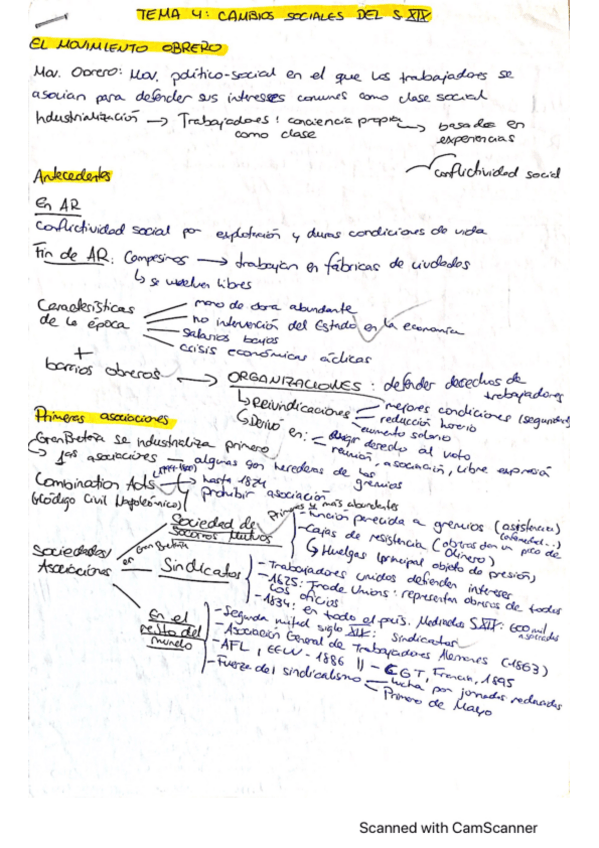 TEMA 4: CAMBIOS SOCIALES DEL S XIX
EL MOVIMIENTO OBRERO
Mov. Obrero: Mov. político-social en el que los trabajadores se
asocian para defender sus intereses comunes como clase social
Industrialización → Trabajadores: conciencia propia → basada en
como clase experiencias
conflictividad social
Antecedentes
En AR
Conflictividad social por explotación y duras condiciones de vida
Fin de AR: Campesinos → trabajan en fábricas de ciudades
↳ se vuelven libres
Características
de la época
mano de obra abundante
no intervención del Estado en la economía
salarios bajos
crisis económicas cíclicas
+
barrios obreros → ORGANIZACIONES: defender derechos de
trabajadores
↳ Reivindicaciones
mejores condiciones (seguridad)
reducción horario
aumento salario
↳ Derivó en:
derecho al voto
reunión, asociación, libre expresión
Primeras asociaciones
Gran Bretaña se industrializa primero
↳ 1as asociaciones — algunas son herederas de los
gremios
Combination Acts (1799-1800) → hasta 1824
(Código Civil Napoleónico) prohibir asociación
Sociedades/
Asociaciones
en Gran Bretaña
Sociedad de
Socorros Mutuos
Primeras y más abundantes
- Función parecida a gremios (asistencia)
- Cajas de resistencia (obreros dan un poco de
dinero)
↳ Huelgas (principal objeto de presión)
Sindicatos
- Trabajadores unidos defienden intereses
- 1825: Trade Unions: representan obreros de todos
los oficios
- 1834: en todo el país. Mediados S XIX: 600 mil
En el
resto del
mundo
- Segunda mitad siglo XIX: sindicatos
- Asociación General de Trabajadores Alemanes (1863)
- AFL, EEUU - 1886 || - CGT, Francia, 1895
- Fuerza del sindicalismo
lucha por jornadas reducidas
Primero de Mayo
Scanned with CamScanner